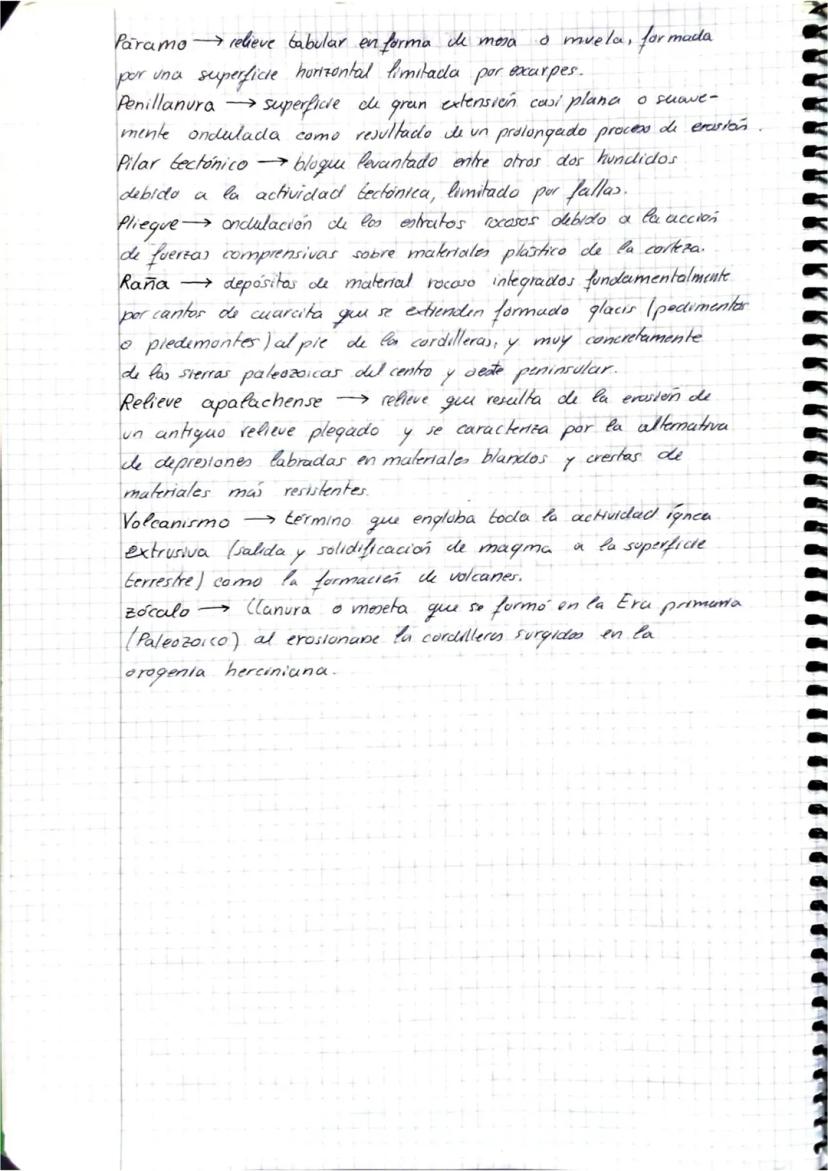 Páramo → relieve tabular en forma de mesa o muela, formada
por una superficie horizontal limitada por escarpes.
Penillanura → superficie de gran extensión casi plana o suave-
mente ondulada como resultado de un prolongado proceso de erosión.
Pilar tectónico → bloque levantado entre otros dos hundidos
debido a la actividad tectónica, limitado por fallas.
Pliegue → ondulación de los estratos rocosos debido a la acción
de fuerzas comprensivas sobre materiales plástico de la corteza.
Raña → depósitos de material rocoso integrados fundamentalmente
por cantos de cuarcita que se extienden formado glacis (pedimentos
o piedemontes) al pie de las cordilleras, y muy concretamente
de las sierras paleozoicas del centro y oeste peninsular.
Relieve apalachense → relieve que resulta de la erosión de
un antiguo relieve plegado y se caracteriza por la alternativa
de depresiones labradas en materiales blandos y crestas de
materiales más resistentes.
Volcanismo → término que engloba toda la actividad ígnea
extrusiva (salida y solidificación de magma a la superficie
terrestre) como la formación de volcanes.
zócalo → llanura o meseta que se formó en la Era primaria
(Paleozoico) al erosionarse la cordilleras surgidas en la
orogenia herciniana.